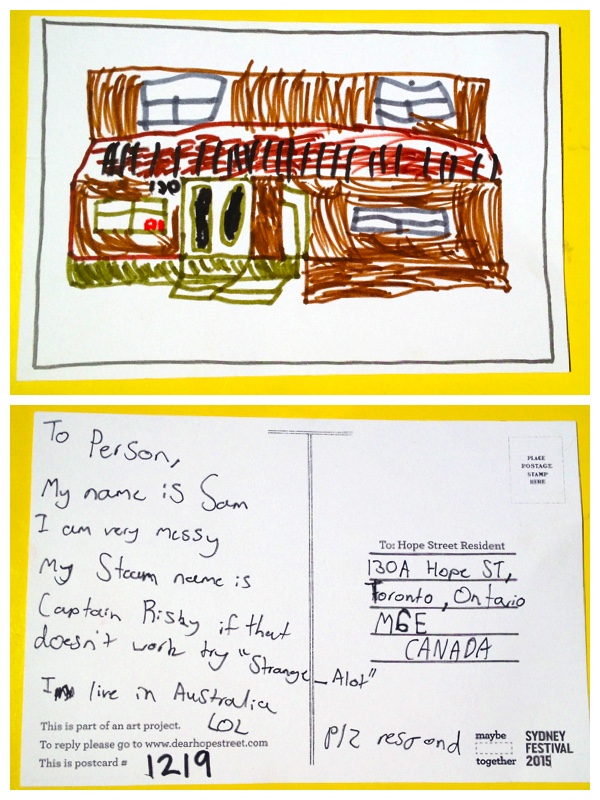 130
To Person,
My name is Sam
I am very messy
My Steam name is
Captain Risky if that
doesn't work try "Strange_Alot"
I live in Australia
LOL
This is part of an art project.
To reply please go to www.dearhopestreet.com
This is postcard # 1219
PLACE
POSTAGE
STAMP
HERE
To: Hope Street Resident
130A Hope ST,
Toronto, Ontario
M6E
CANADA
Plz respond
maybe
together
SYDNEY
FESTIVAL
2015